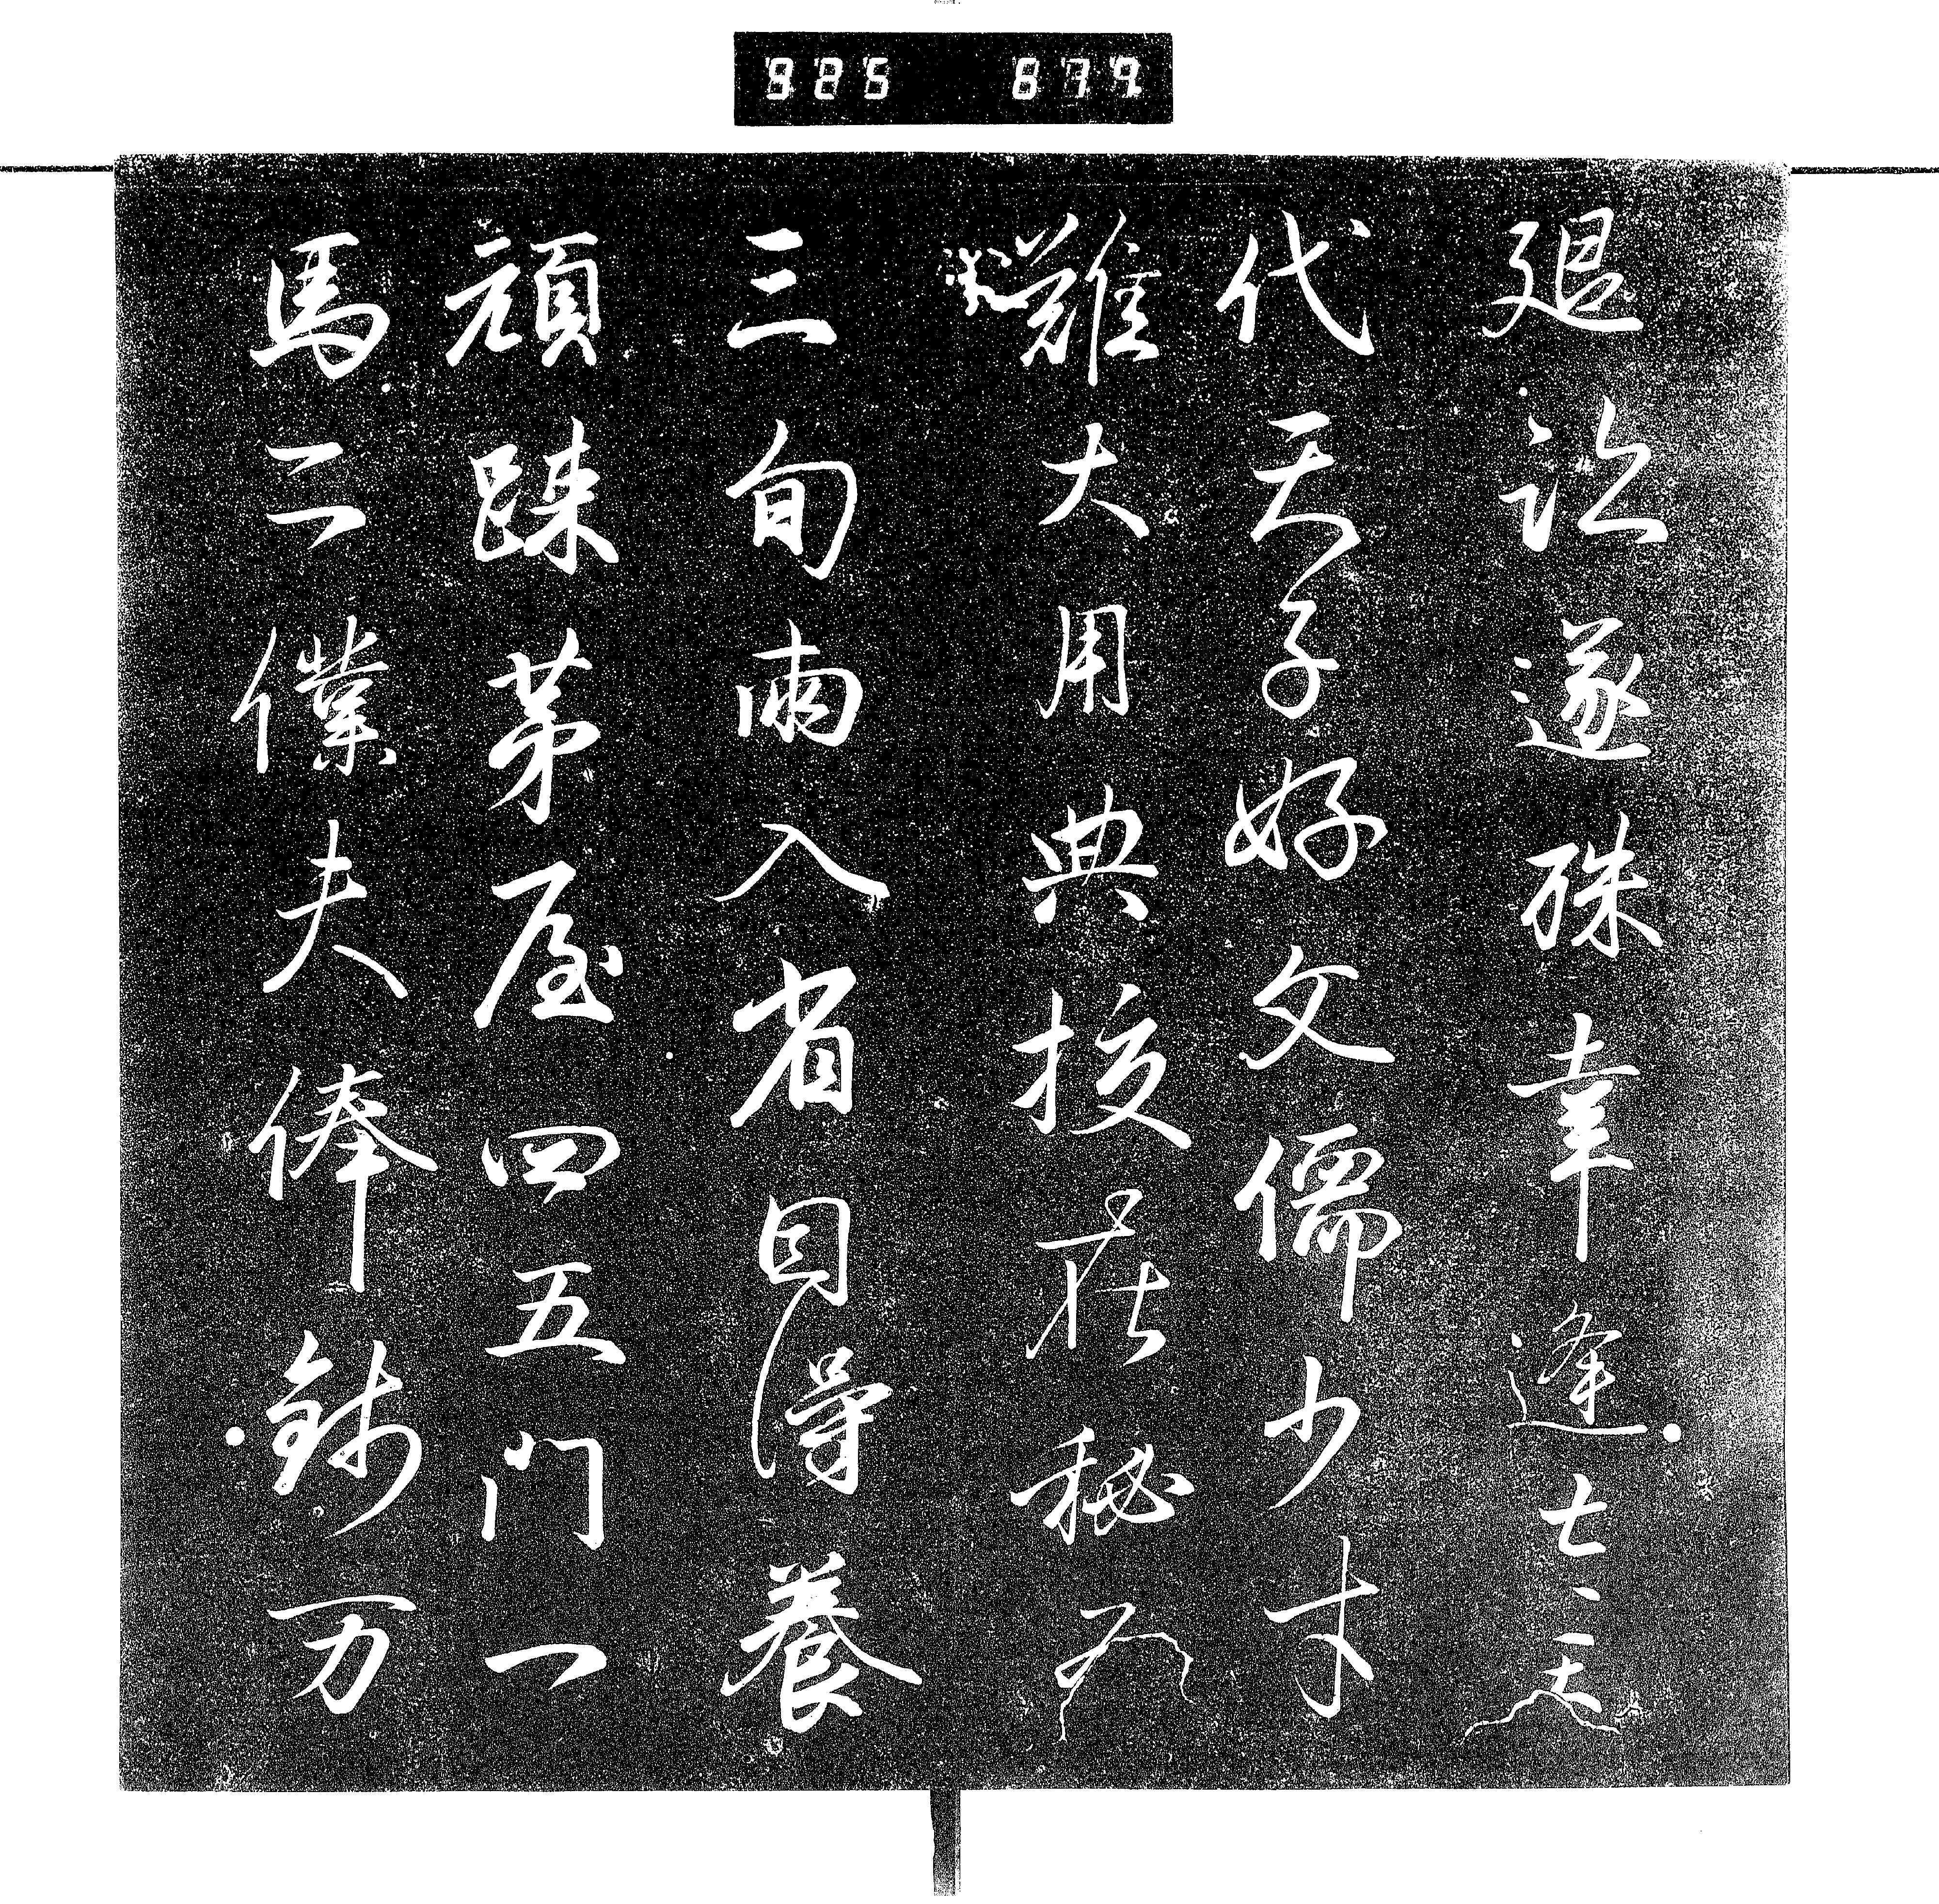 925 679
退遂殊幸逢
代天子好文儒少才
難大用典挍在秘
三旬兩入省得養
頑踈茅屋四五门一
馬二僕夫俸錢万